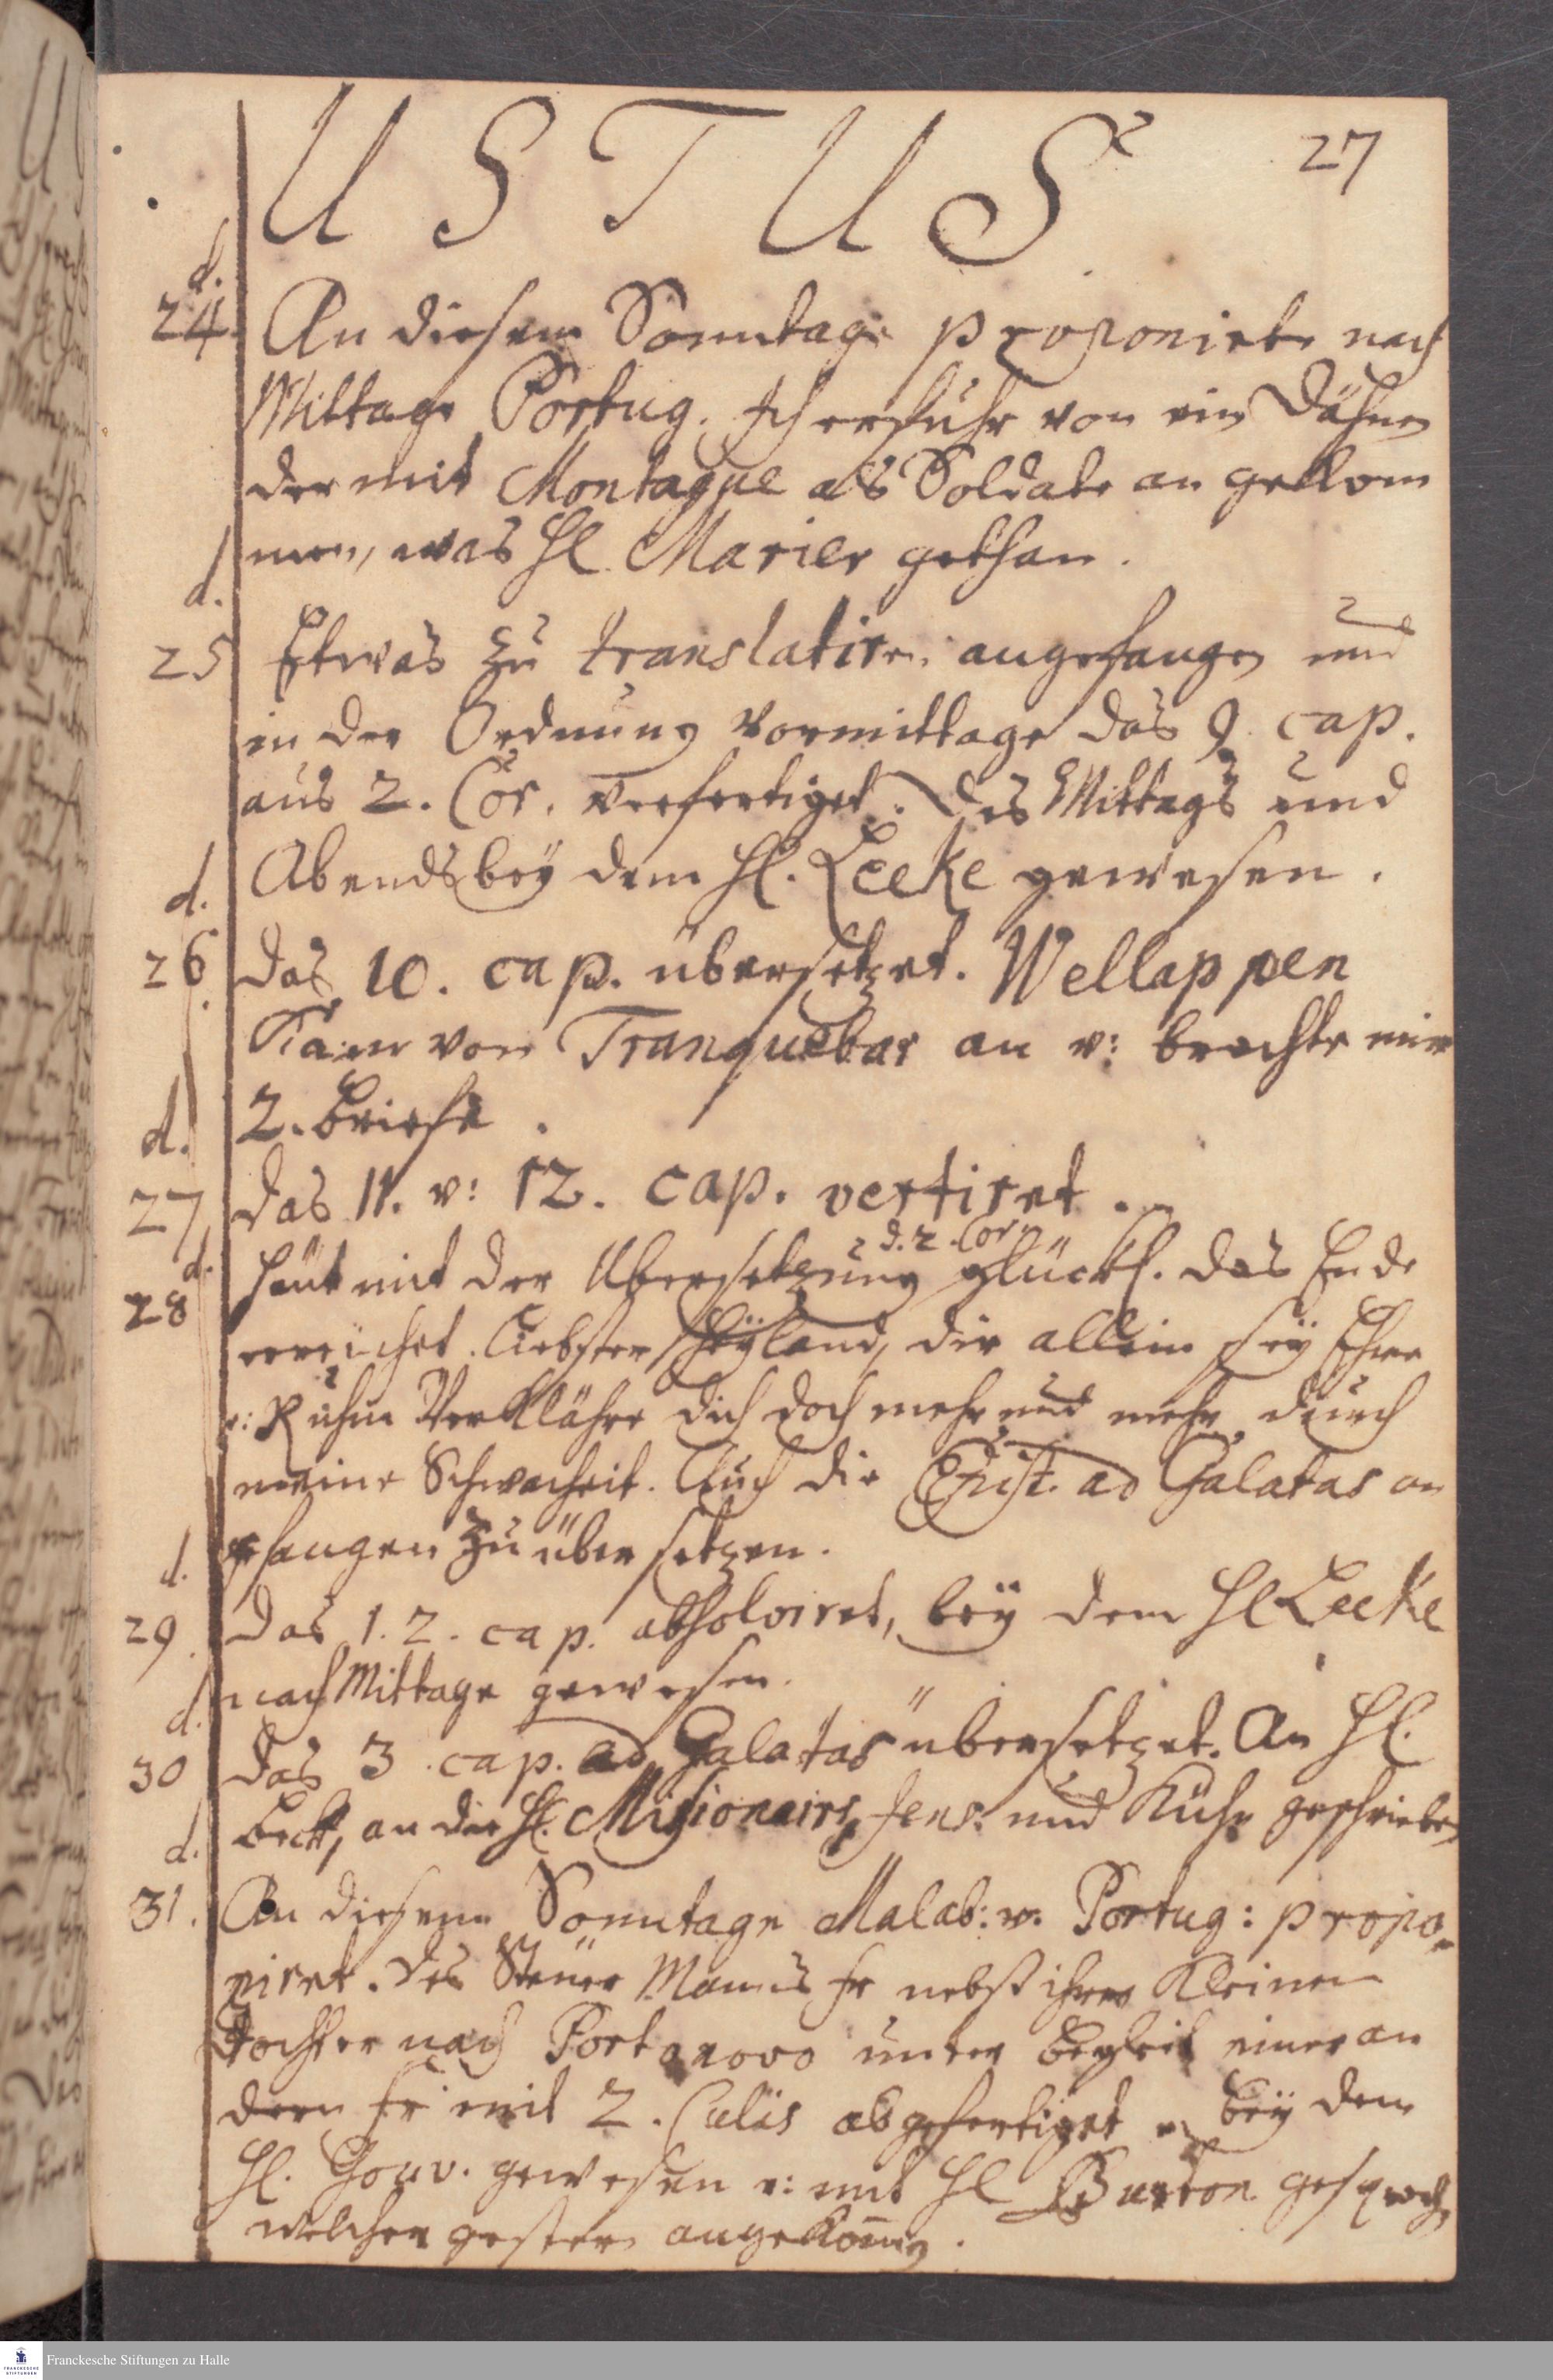 USTUS 27
d.
24. An diesem Sonntage proponirte nach
Mittage Portug. Ich erfuhr von ein Dähnen
der mit Montague als Soldate an gekom
men, was Hl. Marier gethan.
d.
25 Etwas zu translatiren angefangen und
in der Ordnung Vormittage das 9. cap.
aus 2. Cor. verfertiget. Des Mittags und
Abends bey dem Hl. Leeke gewesen.
d.
26 Das 10. cap. übersetzet. Wellappen
Kam von Tranquebar an u: brachte mir
2. briefe.
d.
27 Das 11. u: 12. cap. vertiret.
d. 2. Cor
d.
28 Heut mit der Ubersetzung glückl. das Ende
erreichet. liebster Heyland, dir allein sey Ehre
u: Ruhm Verklähre dich doch mehr und mehr durch
meine Schwacheit. Auch die Epist. ad Galatas an
gefangen zu über setzen.
d.
29. Das 1. 2. cap. absolviret, bey dem Hl Leeke
nach Mittage gewesen.
d.
30 Das 3. cap. ad Galatas übersetzet. An Hl.
Beck, an die Hl. Missionairs, sens. und Kuhn geschrieben
d.
31. An diesem Sonntage Malab: u. Portug: propo
niret. Des Steuer Manns fr nebst ihrer Kleinen
Tochter nach Portonovo unter begleit einer an
dern fr mit 2. Culis abgefertiget. bey dem
Hl. Gouv. gewesen u: mit Hl Burton gesproch,
welcher gestern angekomen.
Franckesche Stiftungen zu Halle
FRANCKESCHE
STIFTUNGEN